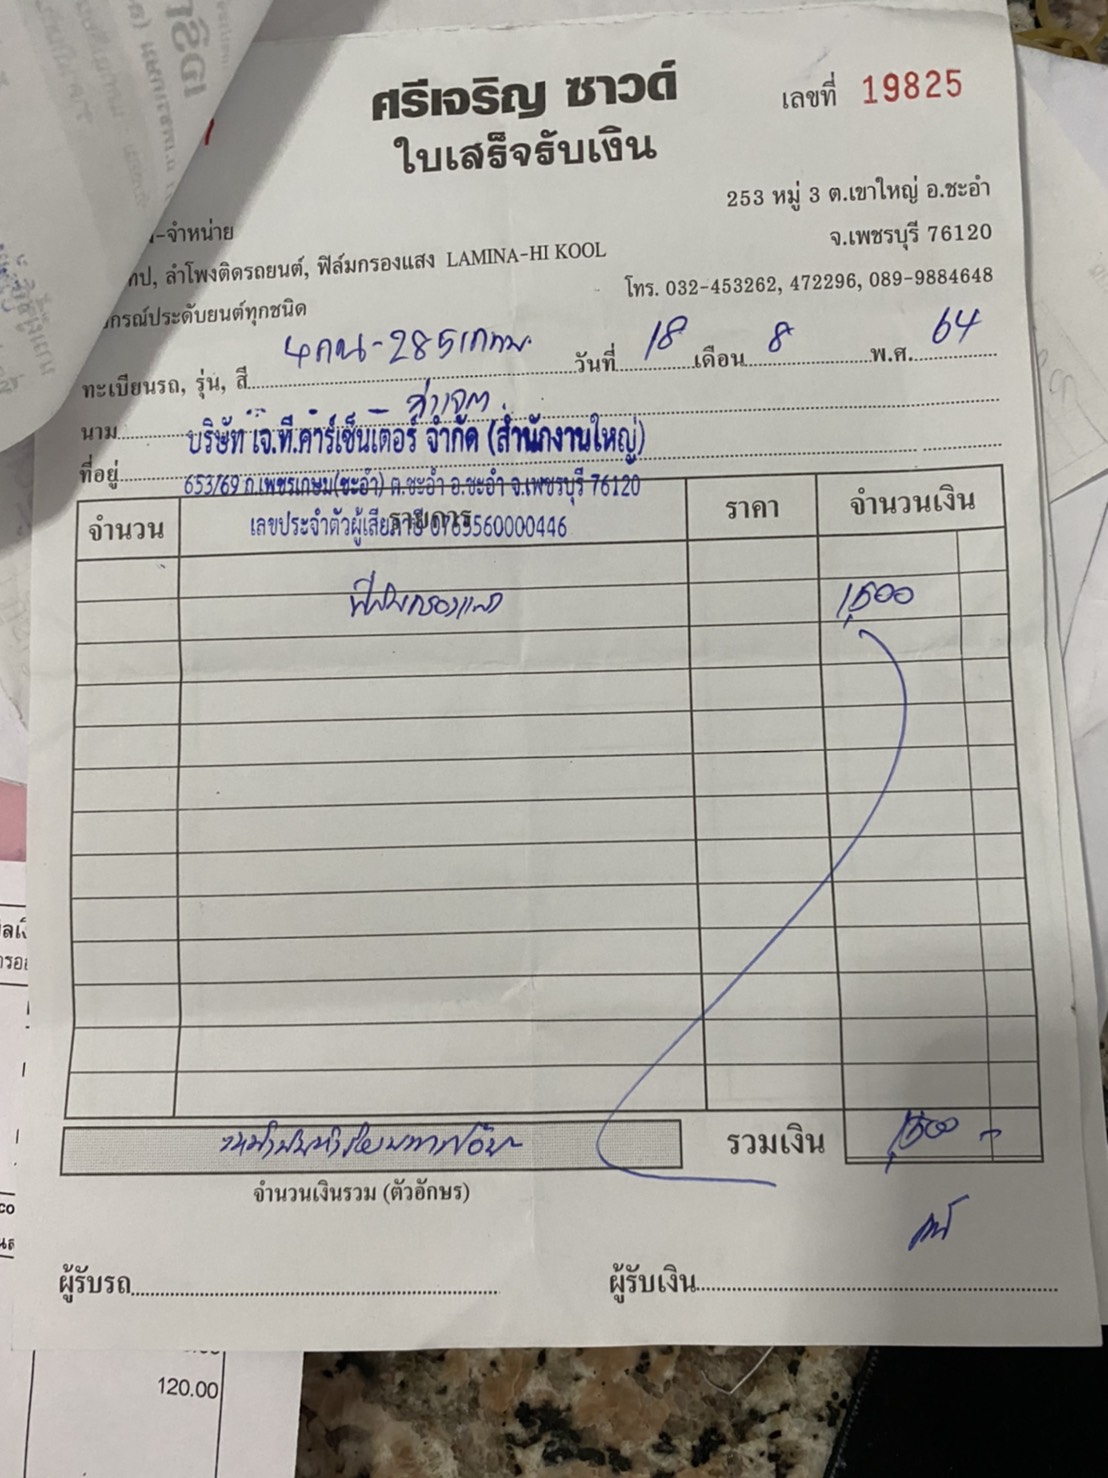 ศรีเจริญ ซาวด์
เลขที่ 19825
ใบเสร็จรับเงิน
253 หมู่ 3 ต.เขาใหญ่ อ.ชะอำ
-จำหน่าย
จ.เพชรบุรี 76120
ลำโพงติดรถยนต์, ฟิล์มกรองแสง LAMINA-HI KOOL
โทร. 032-453262, 472296, 089-9884648
กรณ์ประดับยนต์ทุกชนิด
ทะเบียนรถ, รุ่น, สี 4กน-285 กทม. วันที่ 18 เดือน 8 พ.ศ. 64
นาม
บริษัท เจ.ที.คาร์เซ็นเตอร์ จำกัด (สำนักงานใหญ่)
ที่อยู่
653/69 ถ.เพชรเกษม(ชะอำ) ต.ชะอำ อ.ชะอำ จ.เพชรบุรี 76120
จำนวน รายการ ราคา จำนวนเงิน
เลขประจำตัวผู้เสียภาษี 0765560000446
ฟิล์มกรองแสง 1,500
รวมเงิน 1,500 -
จำนวนเงินรวม (ตัวอักษร)
ผู้รับรถ
ผู้รับเงิน
120.00